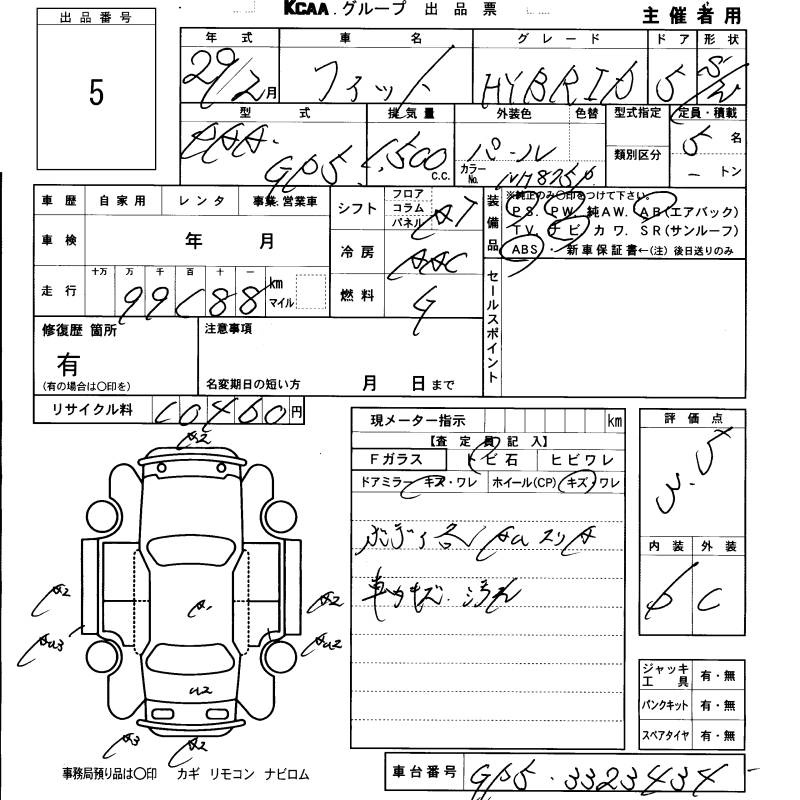 KCAA.グループ 出品票
主催者用
出品番号
5
年式 車名 グレード ドア 形状
29/2月 フィット HYBRID 5 S/W
型式 排気量 外装色 色替 型式指定 定員・積載
DAA-GP5 1,500 c.c. パール 5名
類別区分
カラーNo. NH875P
－トン
車歴 自家用 レンタ 事業・営業車
シフト フロア コラム パネル AT
装備品
※純正のみ〇印をつけて下さい。
PS. PW. 純AW. AB(エアバック)
TV. ナビ カワ. SR(サンルーフ)
ABS ・新車保証書←(注)後日送りのみ
車検 年 月
冷房 AAC
走行 十万 万 千 百 十 一 km マイル
燃料 G
セールスポイント
修復歴 箇所
有
(有の場合は〇印を)
注意事項
名変期日の短い方 月 日まで
リサイクル料 円
現メーター指示 km
【査定員記入】
Fガラス トビ石 ヒビワレ
ドアミラー キズ・ワレ ホイール(CP) キズ・ワレ
車内キズ. 汚れ
評価点
3.5
内装 外装
C
A2
A2
A1
A2
A2
A3
A2
ジャッキ工具 有・無
パンクキット 有・無
スペアタイヤ 有・無
事務局預り品は〇印 カギ リモコン ナビロム
車台番号 GP5-3323434